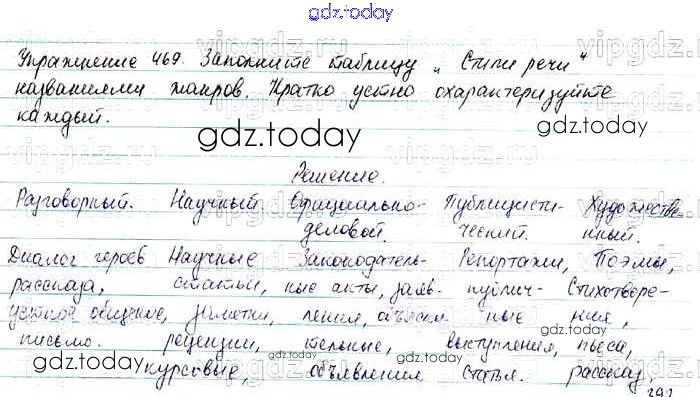 gdz.today
Упражнение 469. Заполните таблицу „Стили речи"
названиями жанров. Кратко устно охарактеризуйте
каждый.
gdz.today
gdz.today
Решение.
Разговорный. Научный Официально- Публицисти- Художестве
деловой. ческий. нный.
Диалог героев Научные Законодатель- Репортажи, Поэмы,
рассказа, статьи, ные акты, заяв- публич- Стихотворе-
устное общение, заметки, ления, объясни ные ния,
письмо. рецензии, тельные, выступления, пьеса,
курсовые, объявления статья. рассказ,
gdz.today
gdz.today
gdz.today